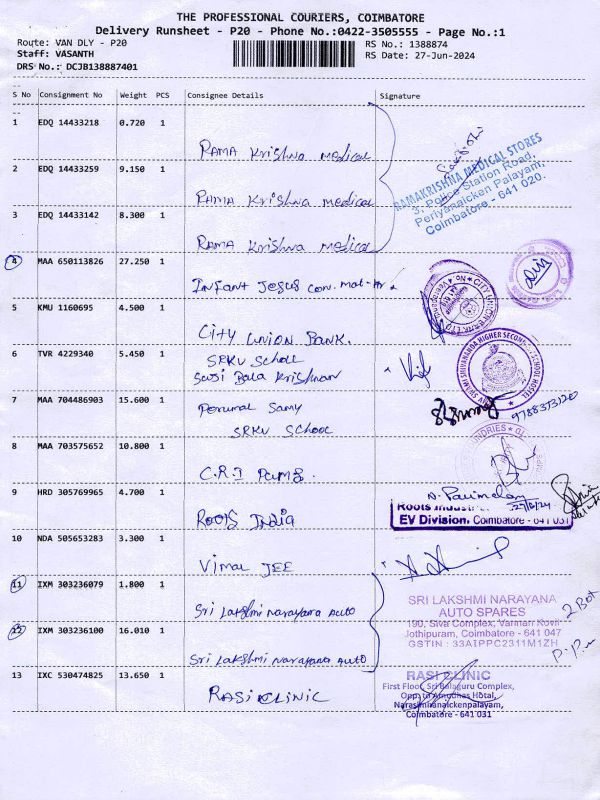 THE PROFESSIONAL COURIERS, COIMBATORE
Delivery Runsheet - P20 - Phone No.:0422-3505555 - Page No.:1
Route: VAN DLY - P20
RS No.: 1388874
Staff: VASANTH
RS Date: 27-Jun-2024
DRS No.: DCJB138887401
S No Consignment No Weight PCS Consignee Details Signature
1 EDQ 14433218 0.720 1
RAMA Krishna medical
2 EDQ 14433259 9.150 1
RAMA Krishna medical
RAMAKRISHNA MEDICAL STORES
3, Police Station Road,
Periyanaicken Palayam,
Coimbatore - 641 020.
3 EDQ 14433142 8.300 1
RAMA Krishna medical
4 MAA 650113826 27.250 1
Infant Jesus con. mat-Hr
5 KMU 1160695 4.500 1
City Union Bank.
CITY UNION BANK LTD
6 TVR 4229340 5.450 1
SRKV School
Bala Krishnan
SWAMI SHIVANANDA HIGHER SECONDARY SCHOOL HOSTEL
7 MAA 704486903 15.600 1
Perumal Samy
SRKV School
9788373120
8 MAA 703575652 10.800 1
C.R.I Pumps.
9 HRD 305769965 4.700 1
Roots India
Roots Industri
27/6/24
EV Division, Coimbatore - 641 031
10 NDA 505653283 3.300 1
Vimal JEE
11 IXM 303236079 1.800 1
Sri Lakshmi Narayana Auto
SRI LAKSHMI NARAYANA
AUTO SPARES
190, Siva Complex, Vannan Kovil
Jothipuram, Coimbatore - 641 047
GSTIN : 33AIPPC2311M1ZH
2 Box
12 IXM 303236100 16.010 1
Sri Lakshmi Narayana Auto
13 IXC 530474825 13.650 1
RASI CLINIC
RASI CLINIC
First Floor, Sri Balaguru Complex,
Narasimhanaickenpalayam,
Coimbatore - 641 031